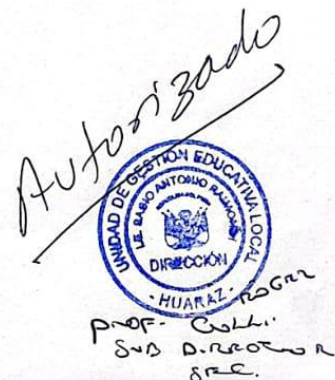 Autorizado
UNIDAD DE GESTIÓN EDUCATIVA LOCAL
ANTONIO RAIMONDI
DIRECCIÓN
- HUARAZ -
ROGER
PROF.
SUB DIRECTOR
SEC.